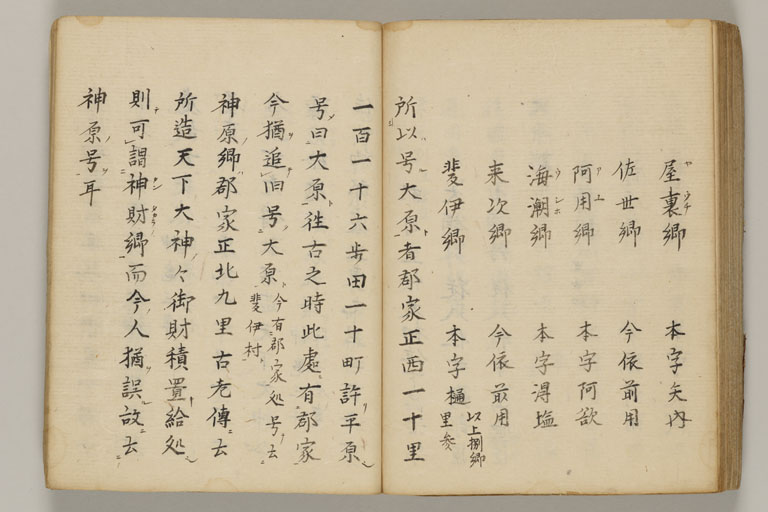 屋裏郷 本字矢内
佐世郷 今依前用
阿用郷 本字阿欲
海潮郷 本字得塩
来次郷 今依前用
斐伊郷 本字樋 以上捌郷 里参
所以号大原者郡家正西一十里
一百一十六歩田一十町許平原
号曰大原往古之時此處有郡家
今猶追旧号大原 今有郡家処号云 斐伊村
神原郷郡家正北九里古老傳云
所造天下大神々御財積置給処
則可謂神財郷而今人猶誤故云
神原号耳